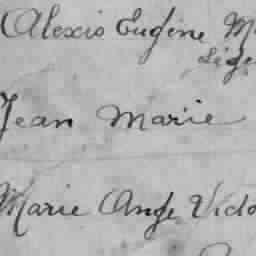 Alexis Eugène M
Lige
Jean Marie
Marie Ange Victo